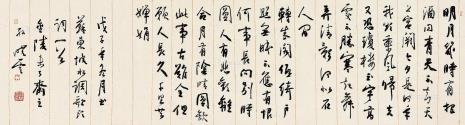 明月幾時有把
酒問青天不知天
上宮闕今夕是何年
我欲乘風歸去
又恐瓊樓玉宇高
處不勝寒起舞
弄清影何似在
人間
轉朱閣低綺戶
照無眠不應有恨
何事長向別時
圓人有悲歡離
合月有陰晴圓缺
此事古難全但
願人長久千里共
嬋娟
戊子年冬月書
蘇東坡水調歌頭
詞一首
金陵
孫曉雲